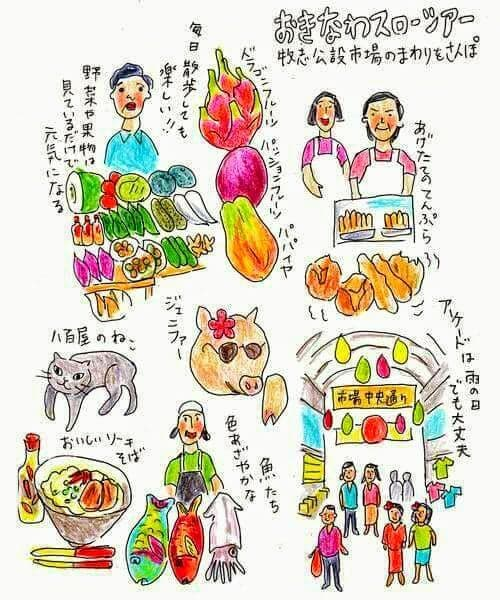 おきなわスローツアー
牧志公設市場のまわりをさんぽ
毎日散歩しても
楽しい!!
ドラゴンフルーツ
パッションフルーツ
パパイヤ
野菜や果物は
見ているだけで
元気になる
あげたてのてんぷら
八百屋のねこ
ジェニファー
アーケードは雨の日
でも大丈夫
市場中央通り
おいしいソーキ
そば
色あざやかな
魚たち